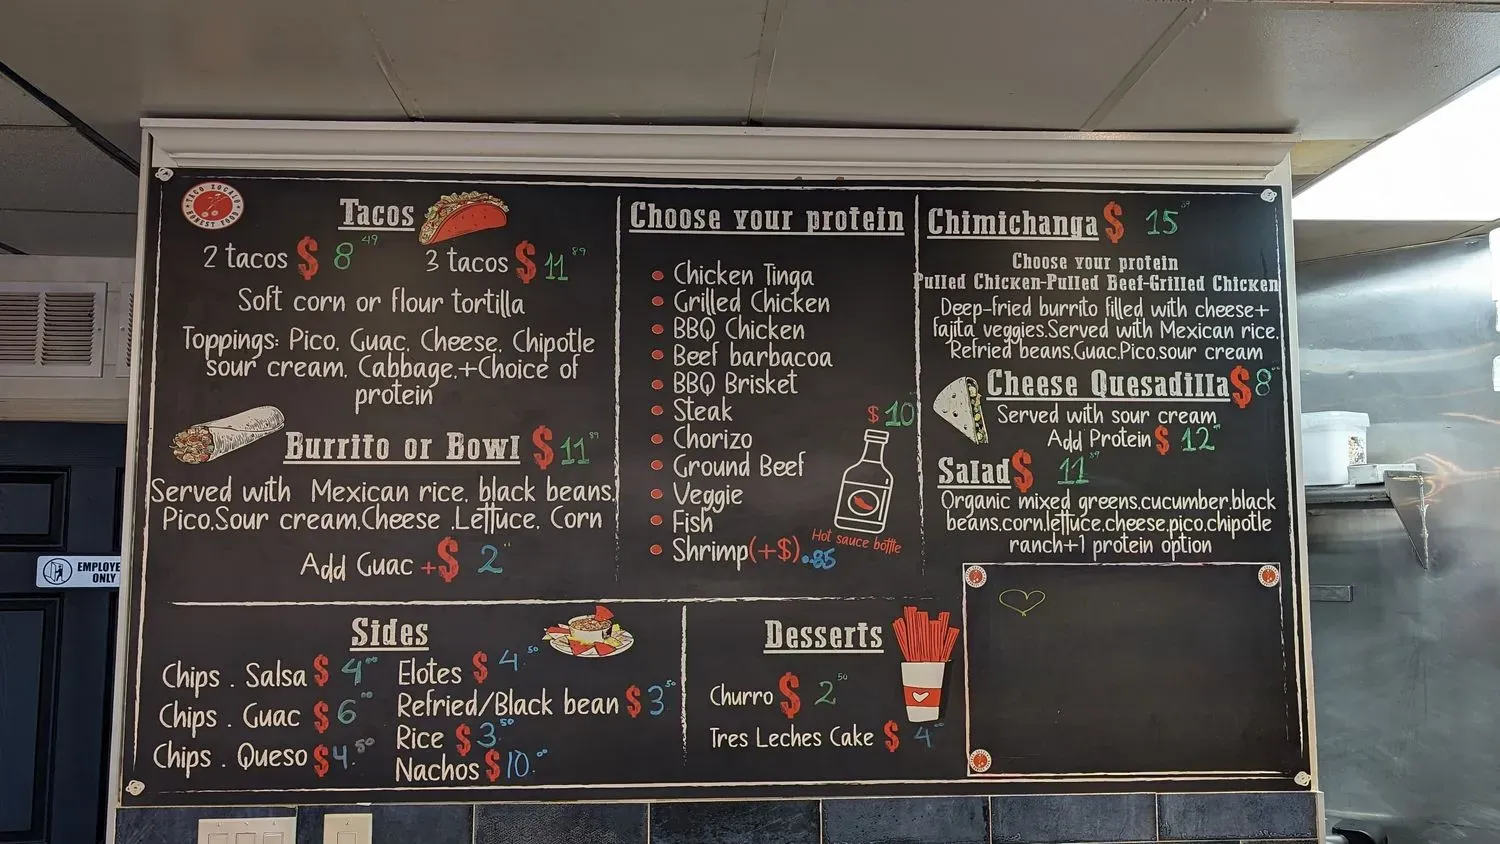 TACO ZOCALO
HONEST FOOD
Tacos
2 tacos $ 8 49
3 tacos $ 11 89
Soft corn or flour tortilla
Toppings: Pico, Guac, Cheese, Chipotle
sour cream, Cabbage,+Choice of
protein
Burrito or Bowl $ 11 89
Served with Mexican rice, black beans,
Pico,Sour cream,Cheese ,Lettuce, Corn
Add Guac +$ 2
Choose your protein
Chicken Tinga
Grilled Chicken
BBQ Chicken
Beef barbacoa
BBQ Brisket
Steak
Chorizo
Ground Beef
Veggie
Fish
Shrimp(+$) .85
$ 10
Hot sauce bottle
Chimichanga $ 15 89
Choose your protein
Pulled Chicken-Pulled Beef-Grilled Chicken
Deep-fried burrito filled with cheese+
fajita veggies.Served with Mexican rice,
Refried beans,Guac,Pico,sour cream
Cheese Quesadilla $ 8
Served with sour cream
Add Protein $ 12
Salad $ 11 89
Organic mixed greens,cucumber,black
beans,corn,lettuce,cheese,pico,chipotle
ranch+1 protein option
Sides
Chips . Salsa $ 4
Chips . Guac $ 6
Chips . Queso $ 4.50
Elotes $ 4.50
Refried/Black bean $ 3 50
Rice $ 3 50
Nachos $ 10.00
Desserts
Churro $ 2 50
Tres Leches Cake $ 4
EMPLOYE
ONLY